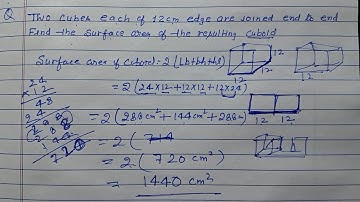 Q Two cubes each of 12cm edge are joined end to end
Find the surface area of the resulting cuboid
Surface area of cuboid = 2(lb+bh+hl)
= 2(24×12+12×12+12×24)
= 2(288cm²+144cm²+288cm²)
= 2(714
= 2(720cm²)
= 1440cm²
24
×12
48
12
12
12
12